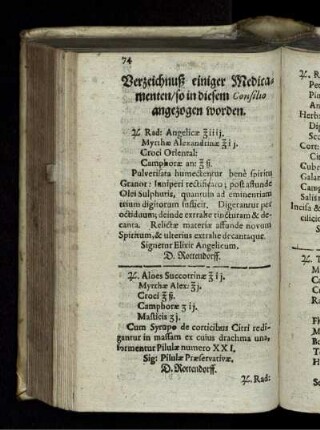 74
Verzeichnuß einiger Medica-
menten/so in diesem Consilio
angezogen worden.
℞. Rad: Angelicæ ℥iiij.
Myrrhæ Alexandrinæ ℥ij.
Croci Oriental:
Camphoræ an: ℥ß.
Pulverisata humectentur benè spiritu
Granor: Iuniperi rectificato; post affunde
Olei Sulphuris, quantum ad eminentiam
trium digitorum sufficit. Digerantur per
octiduum, deinde extrahe tincturam & de-
canta. Relictæ materiæ affunde novum
Spiritum, & ulterius extrahe decantaque.
Signetur Elixir Angelicum.
D. Rottendorff.
℞. Aloes Succotrinæ ℥ij.
Myrrhæ Alex: ℥j.
Croci ℥ß.
Camphoræ ʒij.
Masticis ʒj.
Cum Syrupo de corticibus Citri redi-
gantur in massam ex cuius drachma una,
formentur Pilulæ numero XXI.
Sig: Pilulæ Præservativæ.
D. Rottendorff.
℞. Rad: